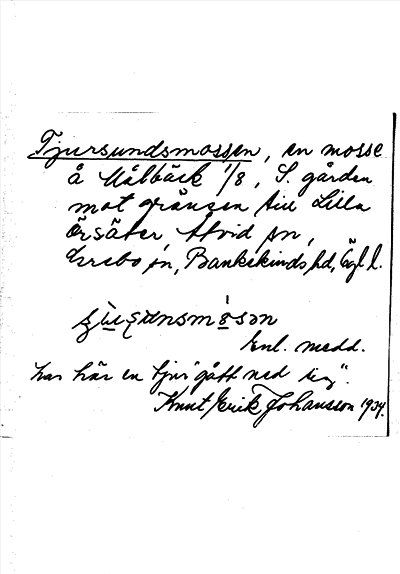 Tjursundsmossen, en mosse
å Målbäck 1/8, S. gården
mot gränsen till Lilla
Örsäter Åtvid sn,
Bankekinds hd, Ögl l.
Enl. medd.
har här en tjur "gått ned sig".
Knut Erik Johansson 1934.